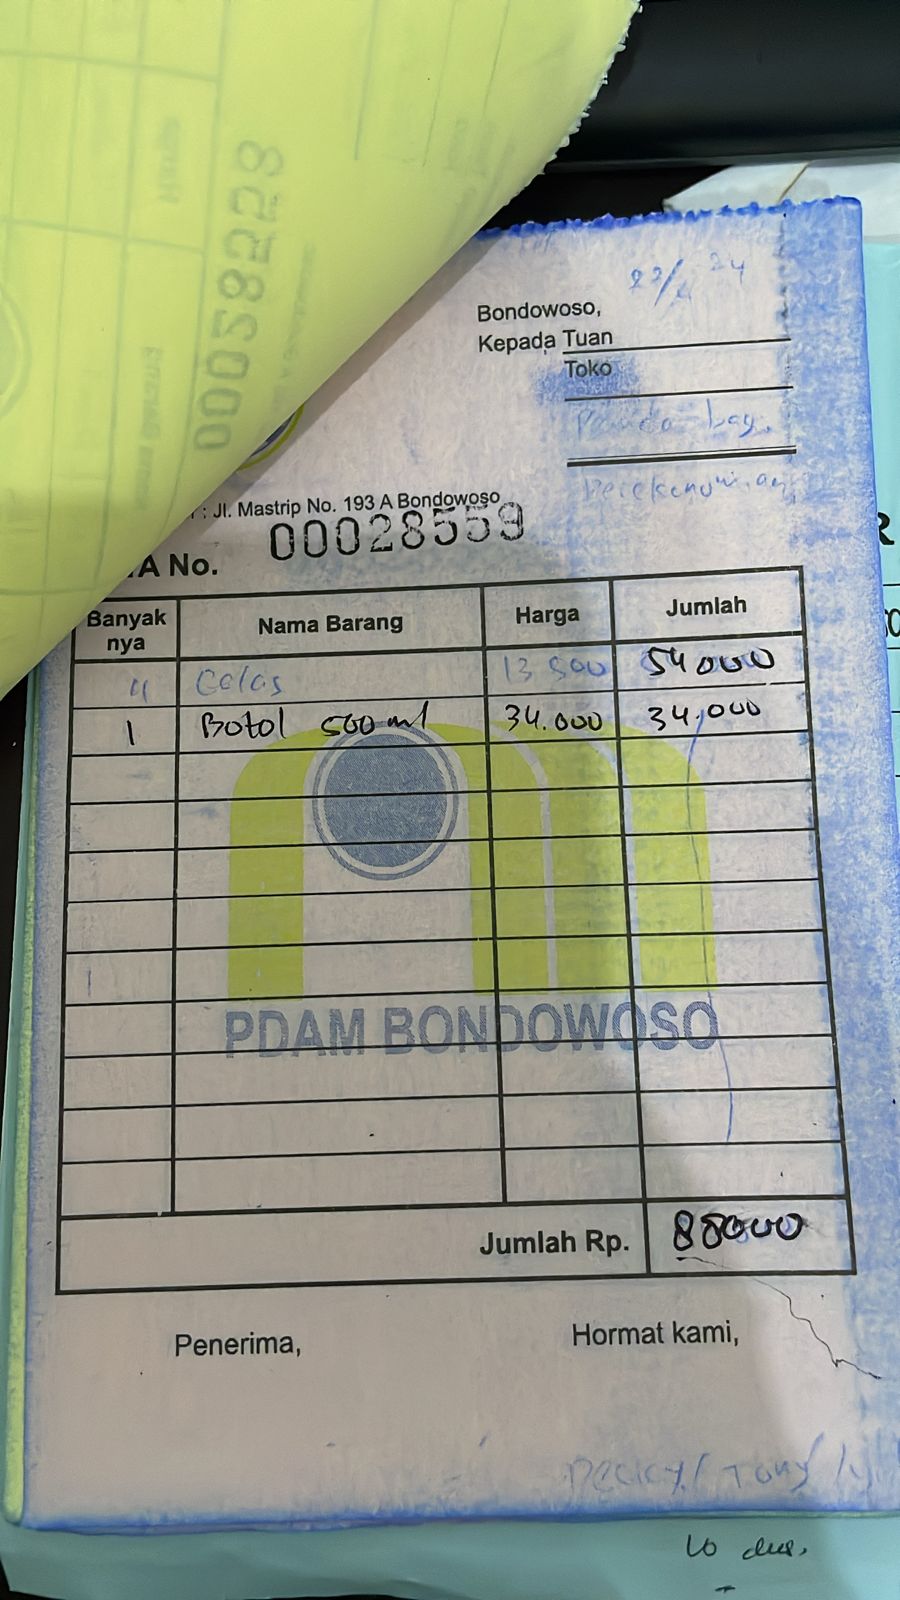 00028558
Bondowoso, 23/4 24
Kepada Tuan
Toko
Pemda bag.
Perekonomian
: Jl. Mastrip No. 193 A Bondowoso
A No. 00028559
Banyak nya Nama Barang Harga Jumlah
4 Gelas 13 500 54000
1 Botol 500 ml 34.000 34,000
PDAM BONDOWOSO
Jumlah Rp. 88000
Penerima, Hormat kami,
Tony
10 dus.